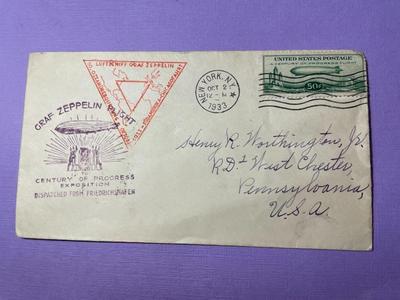 LUFTSCHIFF GRAF ZEPPELIN
1933
GRAF ZEPPELIN FLIGHT
TO
CENTURY OF PROGRESS
EXPOSITION
DISPATCHED FROM FRIEDRICHSHAFEN
NEW YORK, N.Y.
OCT 2
1933
UNITED STATES POSTAGE
A CENTURY OF PROGRESS FLIGHT
50c
Henry R. Worthington, Jr.
R.D.2 West Chester,
Pennsylvania,
U.S.A.